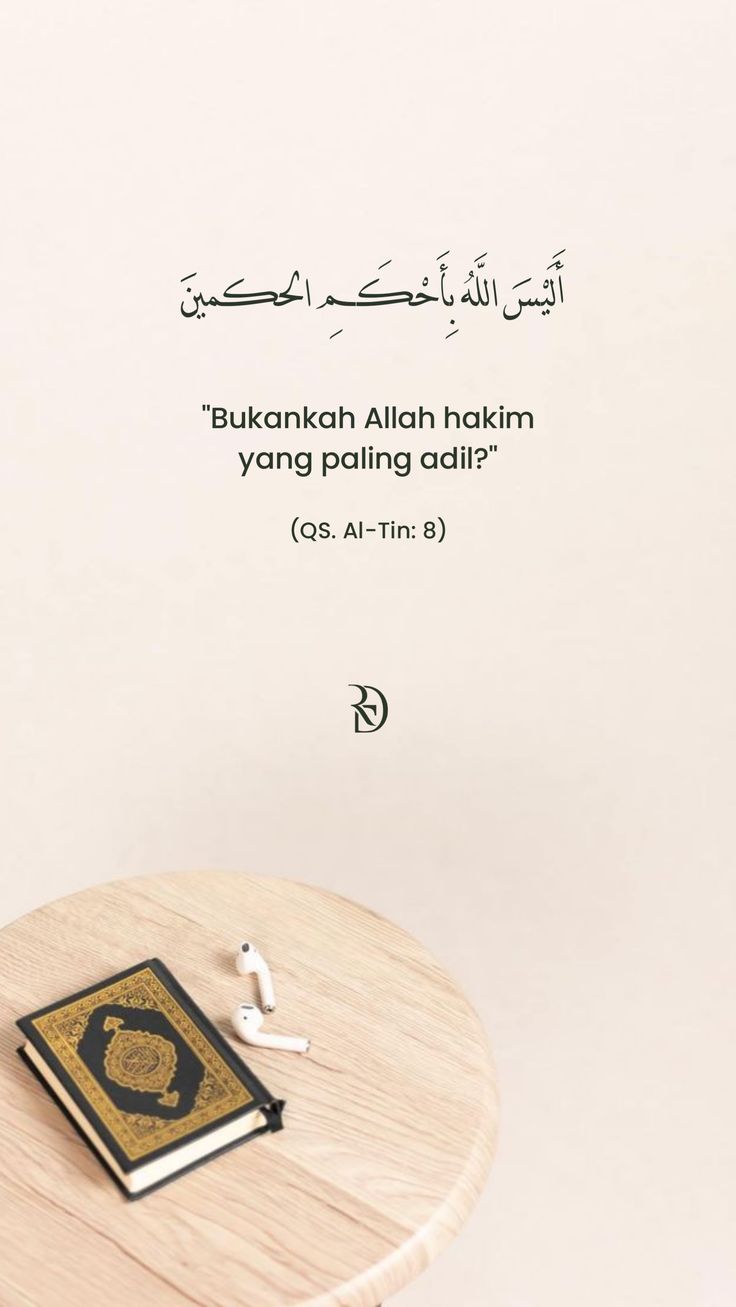 أَلَيْسَ اللَّهُ بِأَحْكَمِ الحكمينَ
"Bukankah Allah hakim
yang paling adil?"
(QS. Al-Tin: 8)